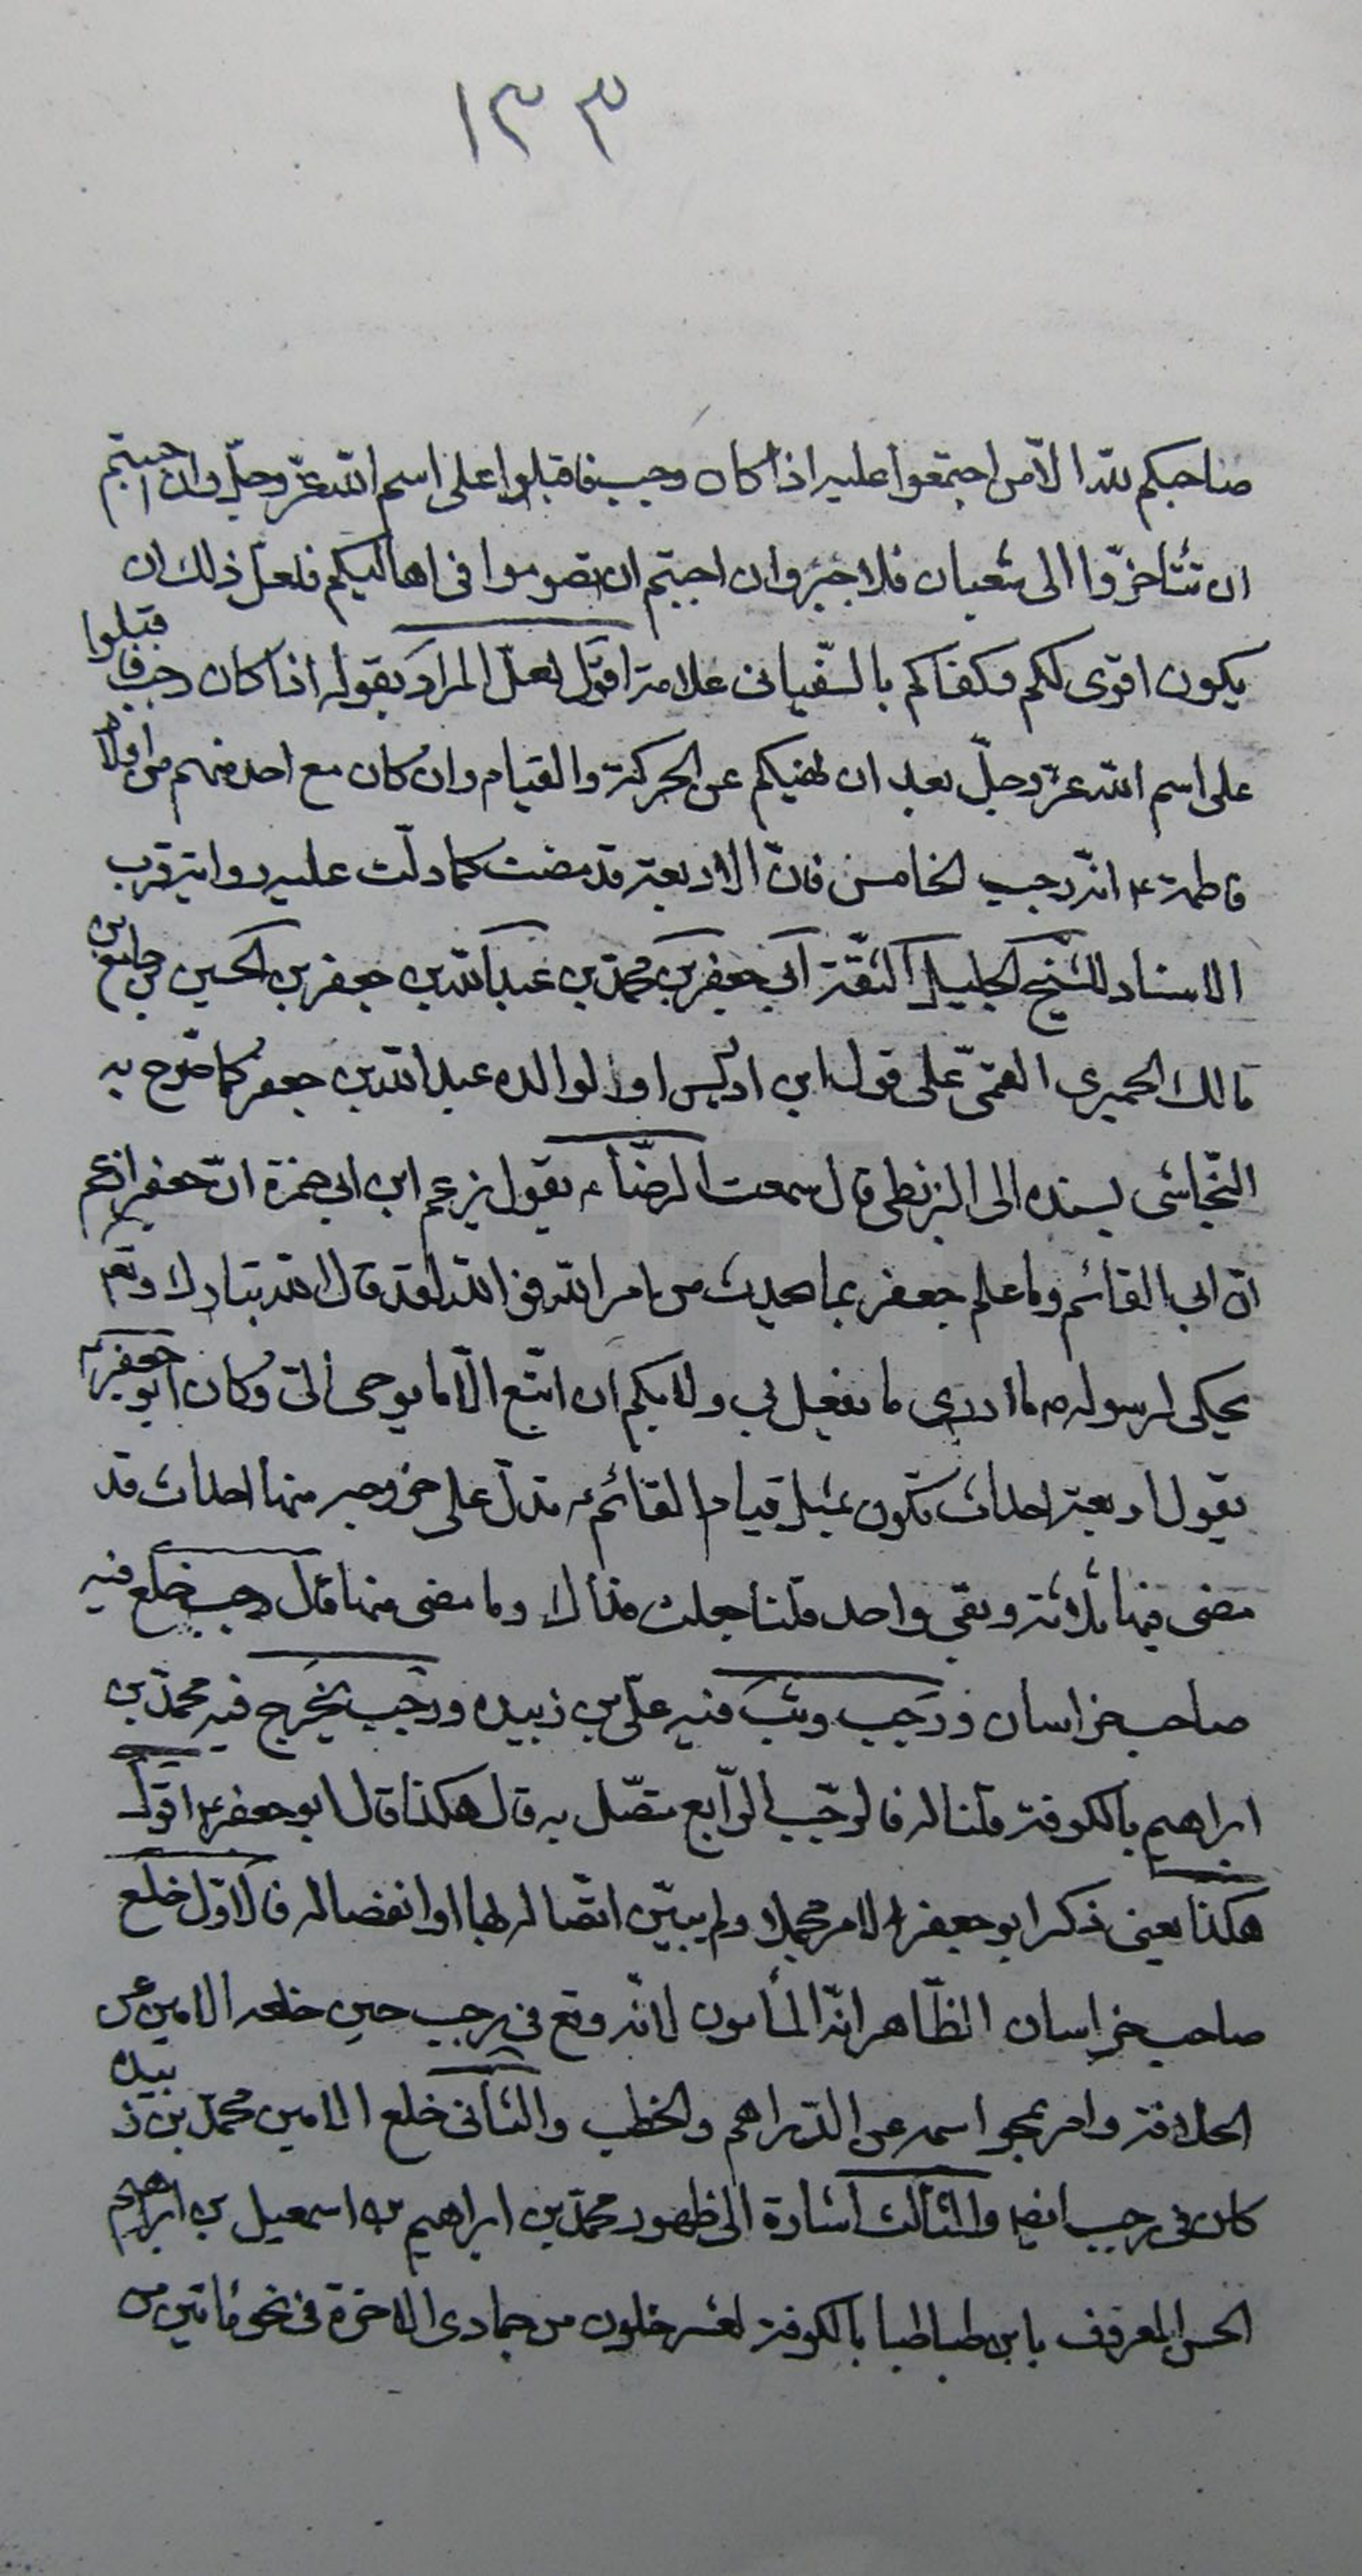 ١٣٣
صاحبكم للّه الا من اجتمعوا عليه اذا كان رجب فاقبلوا على اسم اللّه عزّ وجلّ وان احببتم
ان تتأخّروا الى شعبان فلا خير وان احببتم ان تصوموا فى اهاليكم فلعلّ ذلك ان
يكون اقوى لكم وكفاكم بالسّفيانى علامة اقول لعلّ المراد بقوله اذا كان رجب فاقبلوا
على اسم اللّه عزّ وجلّ بعد ان نهيكم عن الحركة والقيام وان كان مع احد منهم من اولاد
فاطمة ع انّه رجب الخامس فانّ الاربعة قد مضت كما دلّت عليه رواية قرب
الاسناد للشّيخ الجليل الثّقة ابى جعفر محمّد بن عبد اللّه بن جعفر بن الحسين بن جامع بن
مالك الحميرى القمىّ على قول ابن ادريس او لوالده عبد اللّه بن جعفر كما صرّح به
النّجاشى بسنده الى البزنطى قال سمعت الرضّا ع يقول يزعم ابن ابى حمزة انّ جعفر ازعم
انّ ابى القائم وما علم جعفر بما يحدث من امر اللّه فو اللّه لقد قال اللّه تبارك وتعم
يحكى لرسوله ص ما ادرى ما يفعل بى ولا بكم ان اتّبع الّا ما يوحى الىّ وكان ابو جعفر ع
يقول اربعة احداث تكون قبل قيام القائم ع تدلّ على خروجه منها احداث قد
مضى فيها ثلاثة وبقى واحد قلنا جعلت فداك وما مضى منها قال رجب خلع فيه
صاحب خراسان ورجب وثب فيه علىّ بن زبيده ورجب يخرج فيه محمّد بن
ابراهيم بالكوفة قلنا له فالرجّب الرّابع متّصل به قال هكذا قال ابو جعفر ع اقول
هكذا يعنى ذكر ابو جعفر ع الامر مجملا ولم يبيّن اتّصاله بها او انفصاله فالاوّل خلع
صاحب خراسان الظّاهر انّه المأمون لانّه وقع فى رجب حين خلعه الامين عن
الخلافة وامر بمحو اسمه عن الدّراهم والخطب والثّانى خلع الامين محمّد بن زبيده
كان فى رجب ايضا والثّالث اشارة الى ظهور محمّد بن ابراهيم بن اسمعيل بن ابراهيم
الحسن المعروف بابن طباطبا بالكوفة لعشر خلون من جمادى الاخرة فى نحو مأتين من